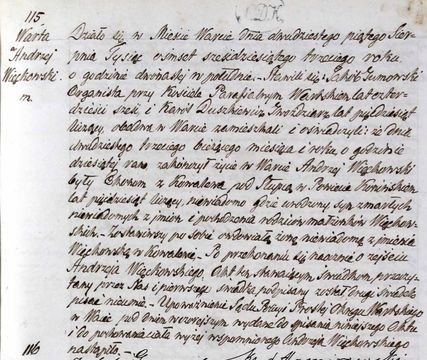 115
Warta
Andrzej
Więckowski
m.
Działo się w Mieście Warcie dnia dwudziestego piątego Sier-
pnia Tysiąc ośmset sześćdziesiątego trzeciego roku
o godzinie dwunastej w południe. – Stawili się Jakób Gumowski
Organista przy Kościele Parafialnym Wartskim lat czter-
dzieści sześć i Karol Duszkiewicz Gwoździarz lat pięćdziesiąt
liczący, obadwa w Warcie zamieszkali i oświadczyli że dnia
dwudziestego trzeciego bieżącego miesiąca i roku, o godzinie
dziesiątej rano zakończył życie w Warcie Andrzej Więckowski
były Ekonom z Kowalewa pod Słupcą w Powiecie Konińskim
lat pięćdziesiąt liczący, niewiadomo gdzie urodzony syn zmarłych
niewiadomych z imion i pochodzenia rodziców małżonków Więckow-
skich. – Zostawiwszy po sobie owdowiałą żonę niewiadomą z imienia
Więckowską w Kowalewie. – Po przekonaniu się naocznie o zejściu
Andrzeja Więckowskiego, Akt ten stawającym Świadkom przeczy-
tany przez Nas i pierwszego świadka podpisany został drugi świadek
pisać nieumie. – Upoważnienie Sądu Policyi Prostej Okręgu Wartskiego
w Warcie pod dniem wczorajszym wydane do spisania niniejszego Aktu
i do pochowania ciała wyżej wspomnionego Andrzeja Więckowskiego
nastąpiło. –
116